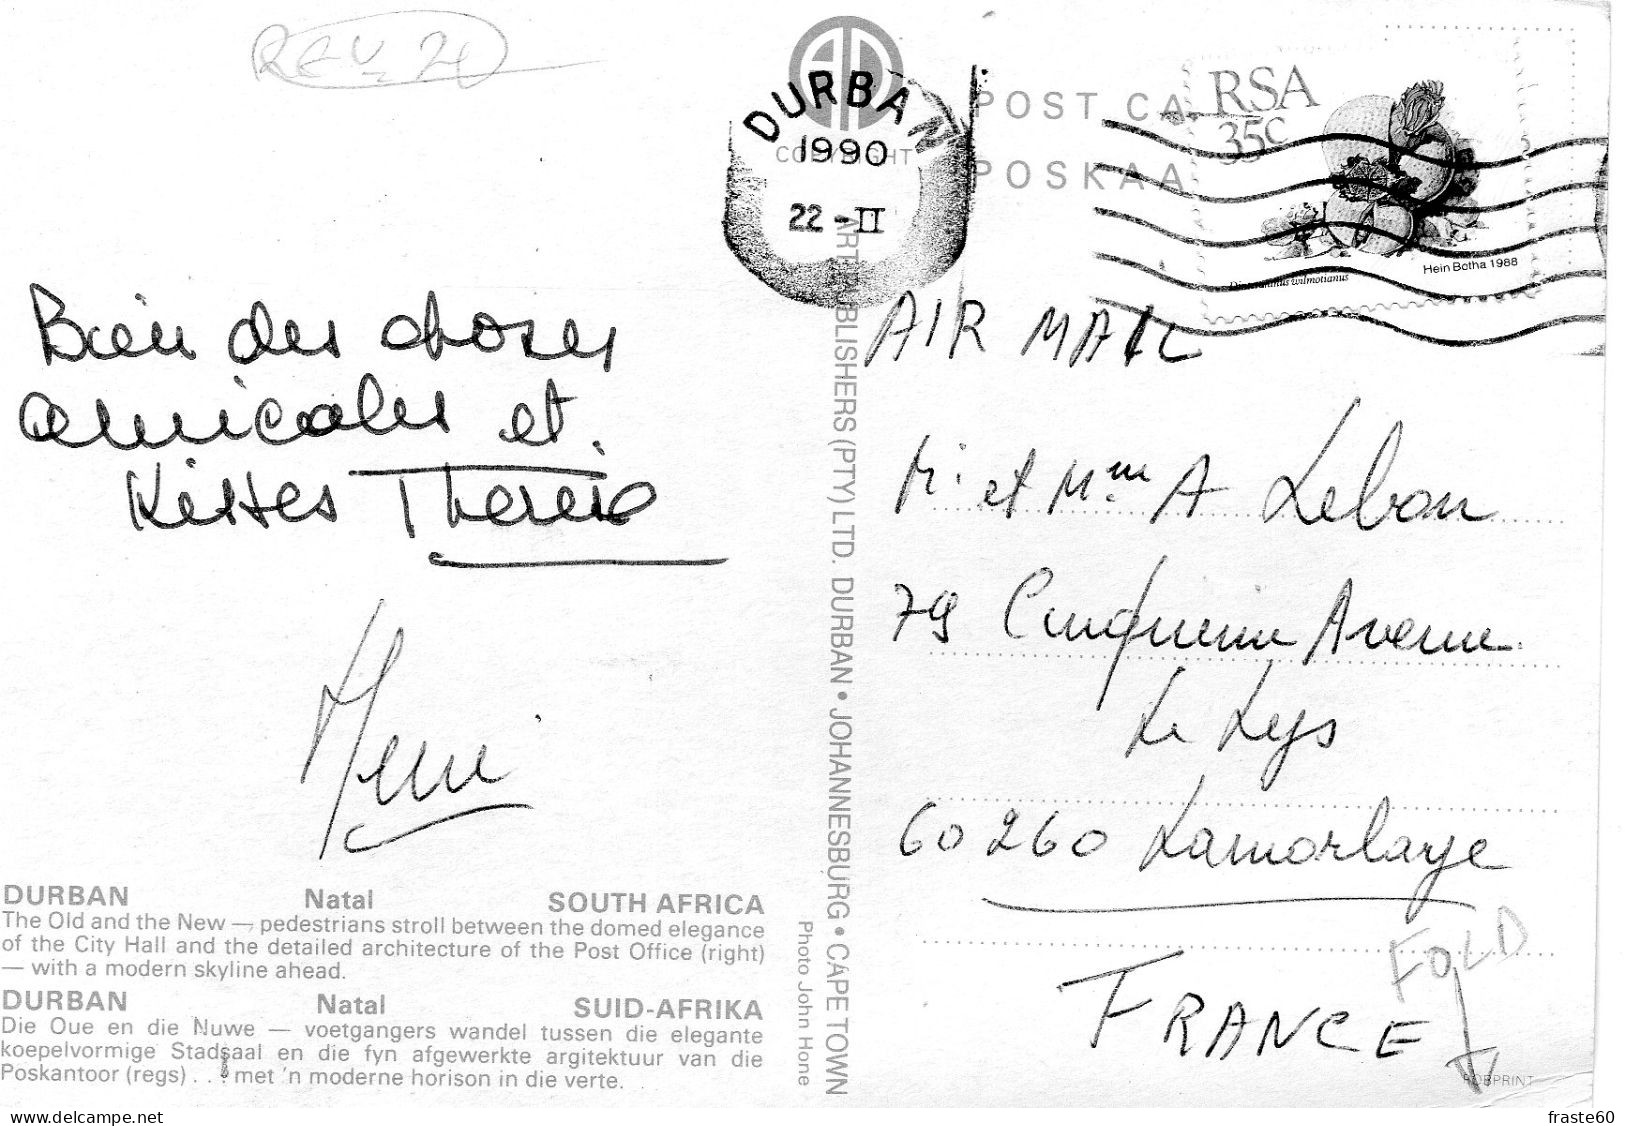 DURBAN
1990
22-II
COPYRIGHT
POST CA
POSKAA
RSA
35c
Hein Botha 1988
wilmotianus
Bien des choses
amicales et
Kisses Therese
AIR MAIL
M. et Mme A Lebon
79 Cinquieme Avenue
Le Lys
60260 Lamorlaye
FRANCE
FOLD
ART PUBLISHERS (PTY) LTD. DURBAN • JOHANNESBURG • CAPE TOWN
Photo John Hone
DURBAN Natal SOUTH AFRICA
The Old and the New — pedestrians stroll between the domed elegance
of the City Hall and the detailed architecture of the Post Office (right)
— with a modern skyline ahead.
DURBAN Natal SUID-AFRIKA
Die Oue en die Nuwe — voetgangers wandel tussen die elegante
koepelvormige Stadsaal en die fyn afgewerkte argitektuur van die
Poskantoor (regs) . . . met 'n moderne horison in die verte.
ROBPRINT
www.delcampe.net
fraste60